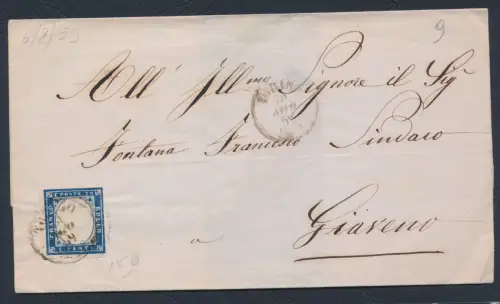 6/8/59
9
All' Ill.mo Signore il Sig.
Fontana Francesco Sindaco
a
Giaveno
FRANCO
C. POSTE 20
BOLLO
15 B